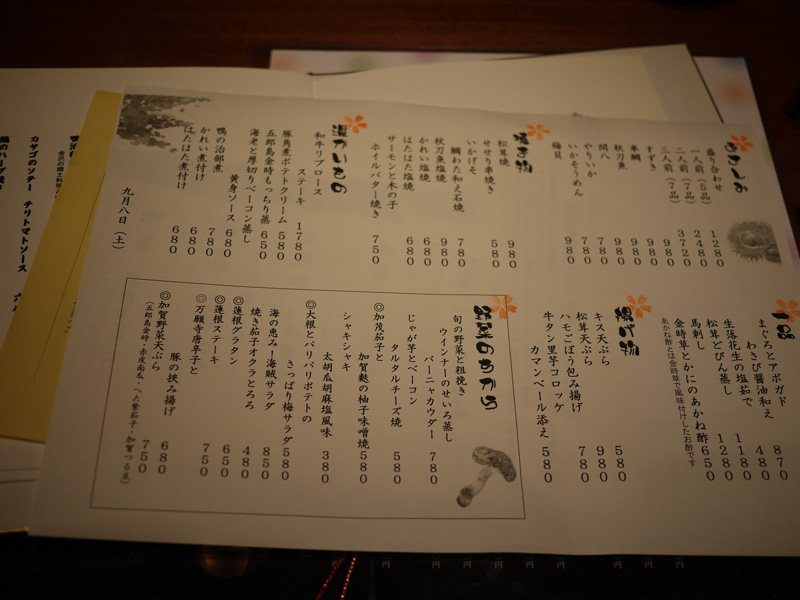 おさしみ
盛り合わせ
一人前（5品） 1280
二人前（7品） 2480
三人前（7品） 3720
すずき 980
本鯛 980
秋刀魚 980
関八 980
やりいか 780
いかそうめん 780
梅貝 980
焼き物
松茸焼 980
せせり串焼き 580
いかげそ
鯛わた和え石焼 780
秋刀魚塩焼 980
かれい塩焼 680
はたはた塩焼 680
サーモンと木の子
ホイルバター焼き 750
温かいもの
和牛リブロース
ステーキ 1780
豚角煮ポテトクリーム 580
五郎島金時もっちり蒸 650
海老と厚切りベーコン蒸し
黄身ソース 680
鴨の治部煮 780
かれい煮付け 680
はたはた煮付け 680
九月八日（土）
一品
まぐろとアボガド
わさび醤油和え 870
生落花生の塩茹で 480
松茸どびん蒸し 1180
馬刺し 1280
金時草とかにのあかね酢 650
あかね酢とは金時草で風味付けしたお酢です
揚げ物
キス天ぷら 580
松茸天ぷら 980
ハモごぼう包み揚げ 780
牛タン里芋コロッケ
カマンベール添え 580
野菜のちから
旬の野菜と粗挽き
ウインナーのせいろ蒸し
バーニャカウダー 780
じゃが芋とベーコン
タルタルチーズ焼 580
◎加茂茄子と
加賀麩の柚子味噌焼 580
シャキシャキ
太胡瓜胡麻塩風味 380
◎大根とパリパリポテトの
さっぱり梅サラダ 580
海の恵み！海賊サラダ 850
焼き茄子オクラとろろ 480
◎蓮根グラタン 650
◎蓮根ステーキ
◎万願寺唐辛子と 750
豚の挟み揚げ 680
◎加賀野菜天ぷら 750
（五郎島金時・赤皮南瓜・へた紫茄子・加賀つる豆）
カサゴのソテー チリトマトソース